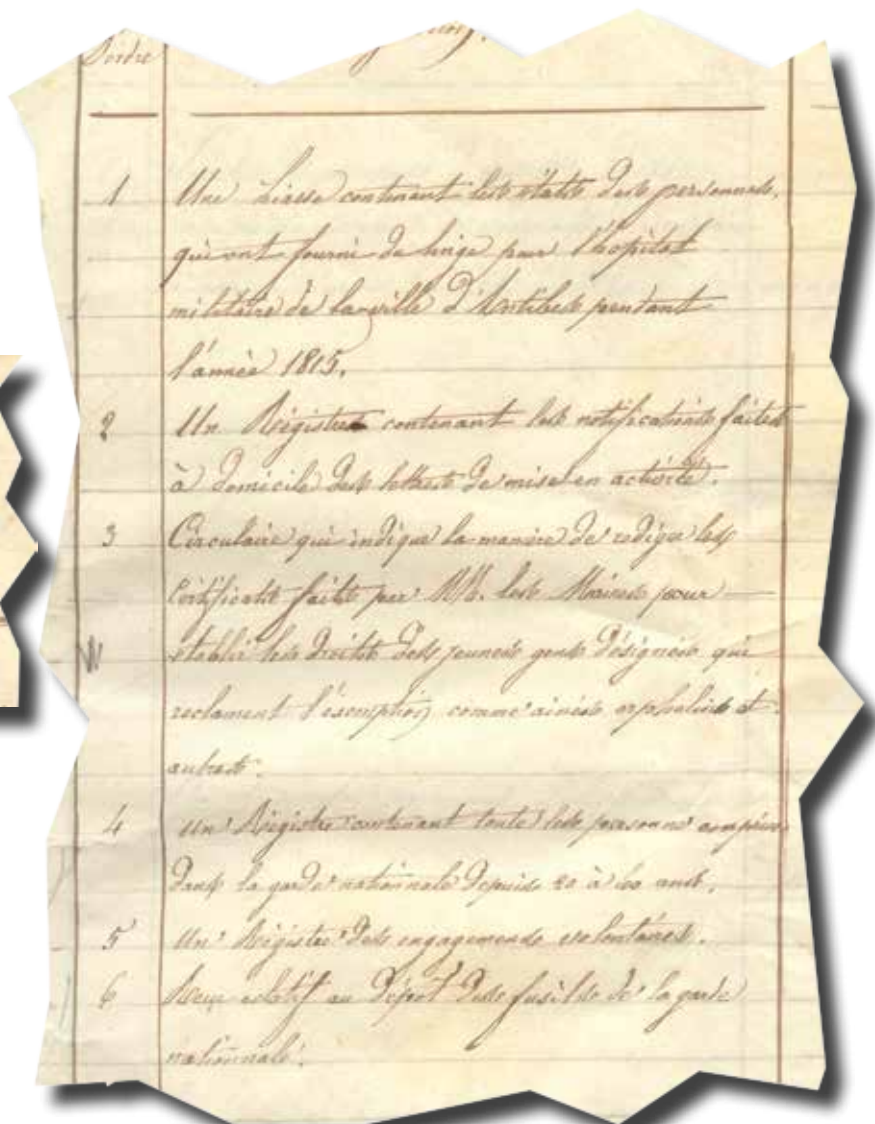 d'ordre
1 Une Liasse contenant les états des personnes,
qui ont fourni du linge pour l'hopital
militaire de la ville d'Antibes pendant
l'année 1815.
2 Un Régistre contenant les notifications faites
à domicile des lettres de mise en activité.
3 Circulaire qui indique la maniere de rediger les
Certificats faits par MM. les Maires pour
établir les droits des jeunes gens désignés qui
reclament l'éxemption comme ainés orphelins et
autres.
4 Un Régistre contenant toute les personne comprises
dans la garde nationale depuis 20 à 60 ans.
5 Un Régistre des engagements volontaires.
6 relatif au Dépot des fusils de la garde
nationale.